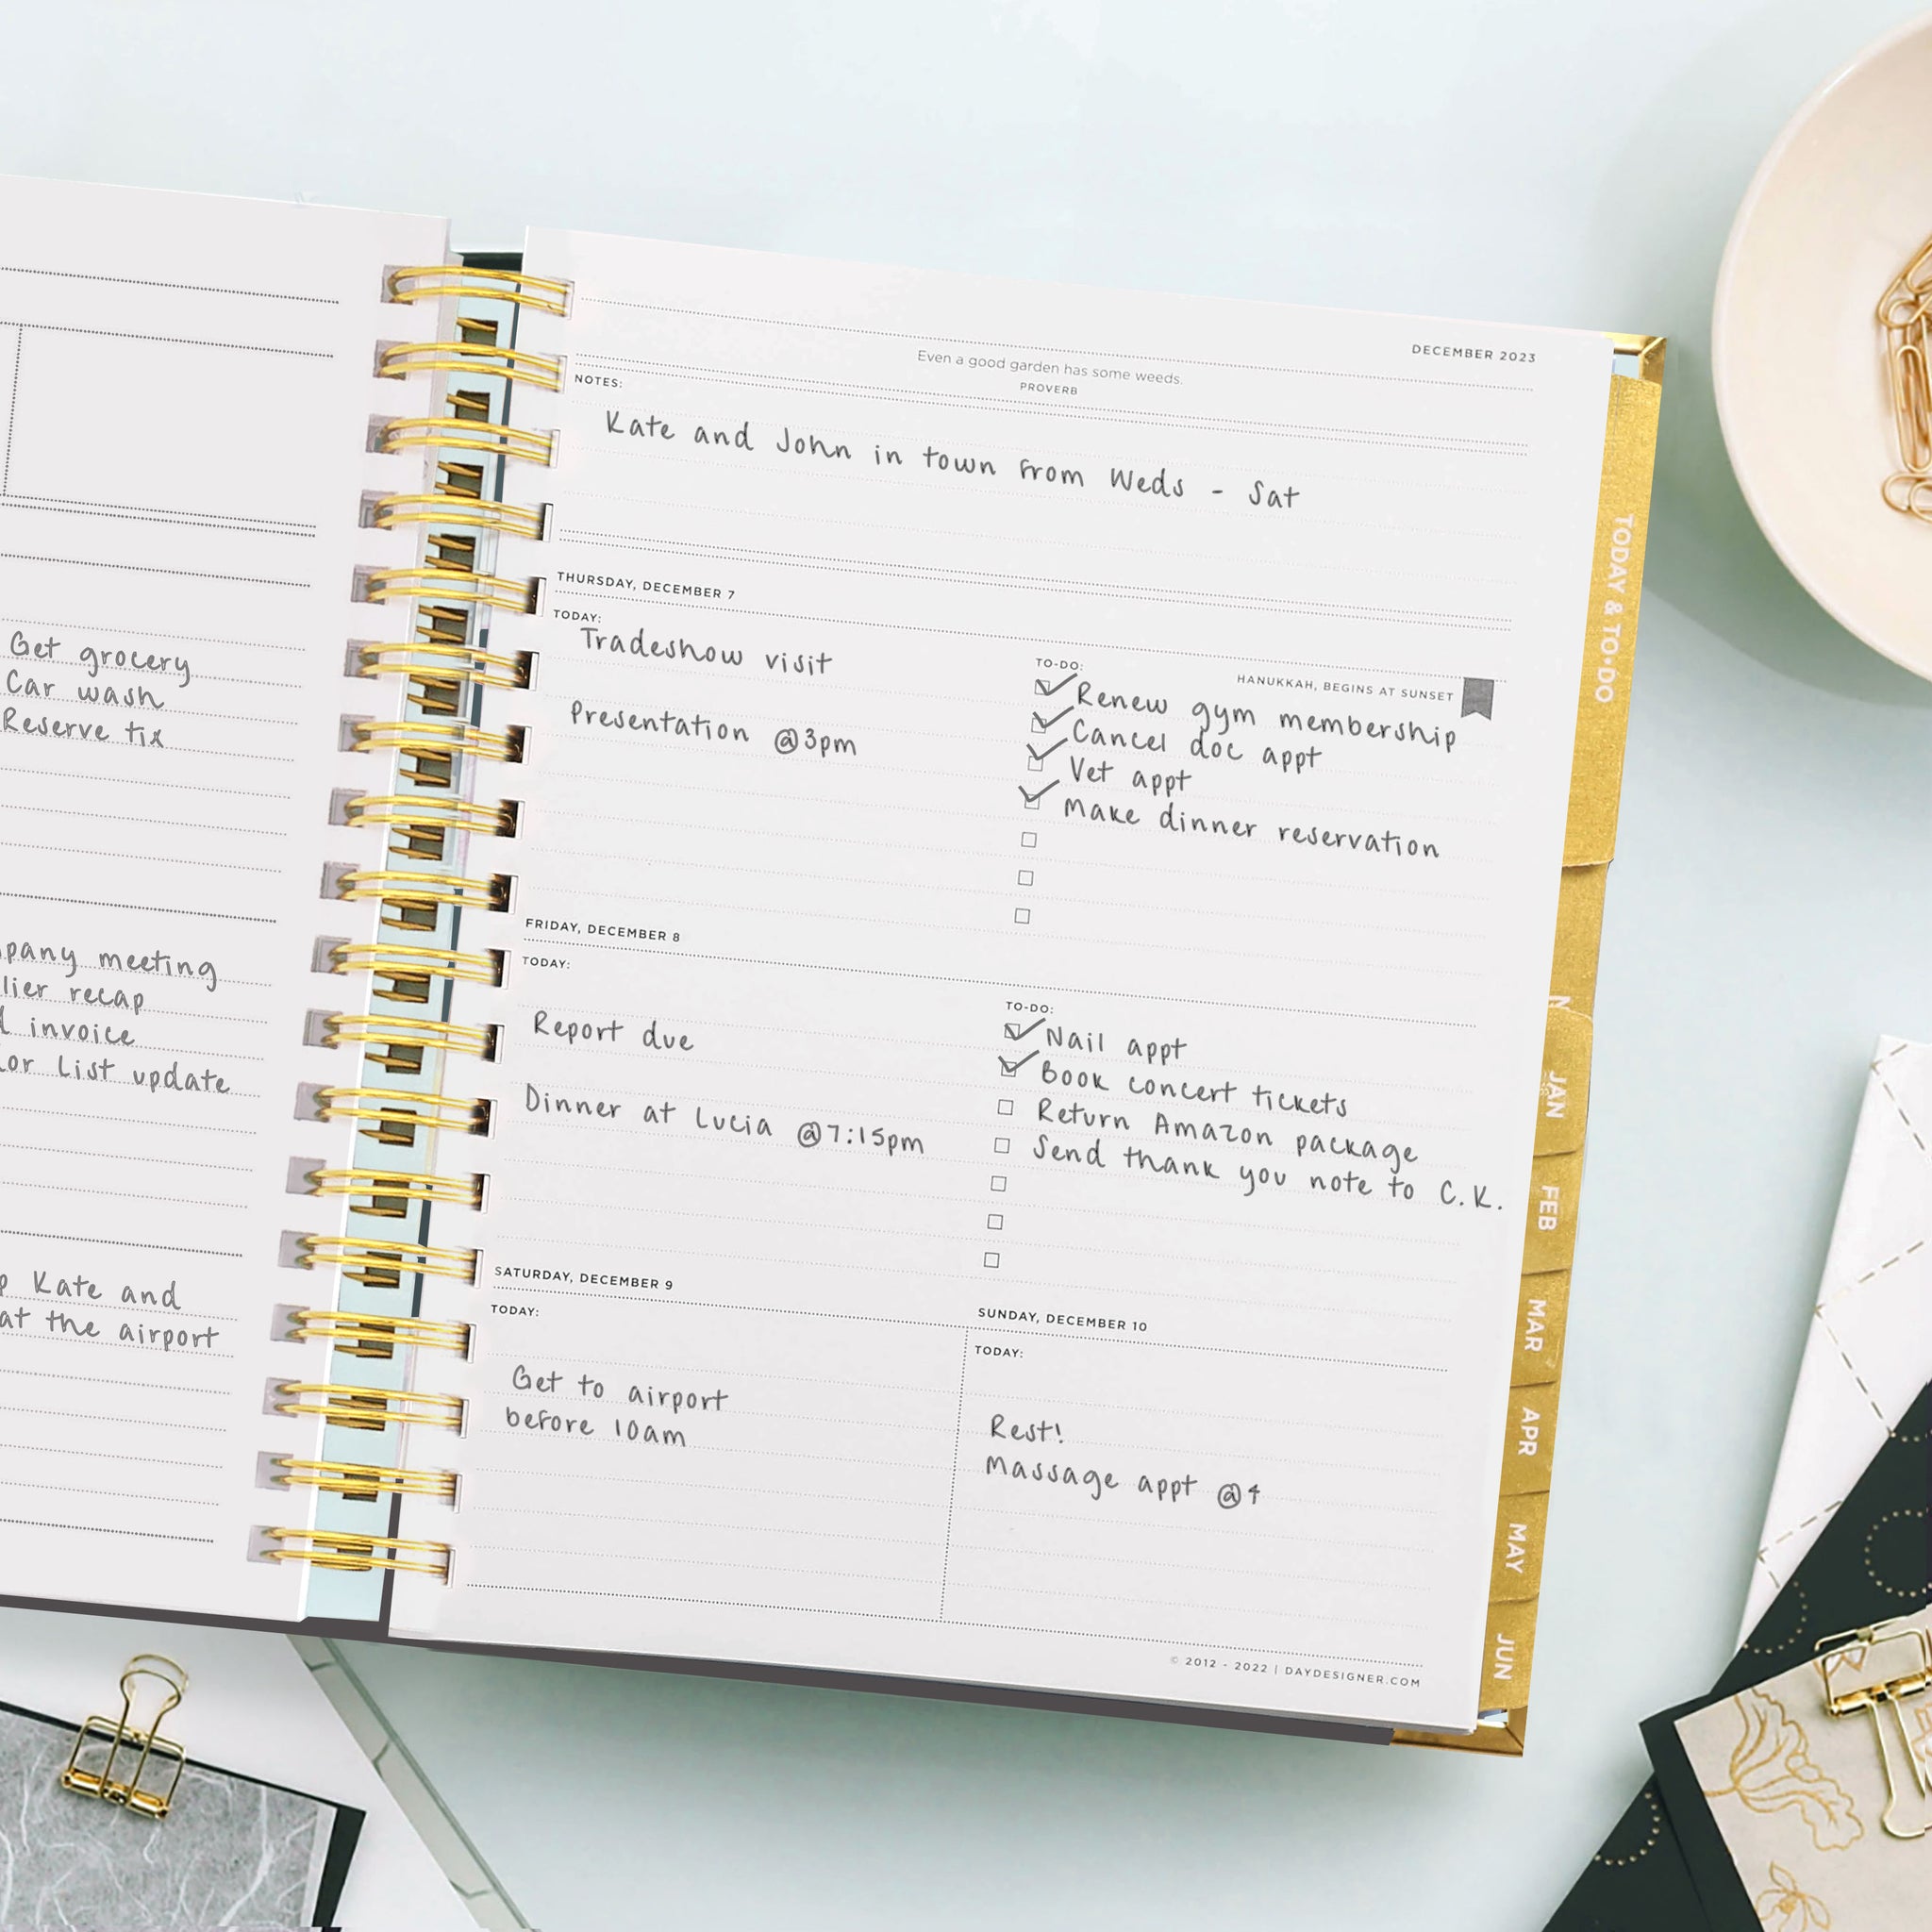 Get grocery
Car wash
Reserve tix
meeting
recap
invoice
List update
Kate and
at the airport
DECEMBER 2023
Even a good garden has some weeds.
PROVERB
NOTES:
Kate and John in town from Weds - Sat
THURSDAY, DECEMBER 7
TODAY:
Tradeshow visit
Presentation @3pm
TO-DO:
HANUKKAH, BEGINS AT SUNSET
Renew gym membership
Cancel doc appt
Vet appt
Make dinner reservation
FRIDAY, DECEMBER 8
TODAY:
Report due
Dinner at Lucia @7:15pm
TO-DO:
Nail appt
Book concert tickets
Return Amazon package
Send thank you note to C.K.
SATURDAY, DECEMBER 9
TODAY:
Get to airport
before 10am
SUNDAY, DECEMBER 10
TODAY:
Rest!
Massage appt @4
© 2012 - 2022 | DAYDESIGNER.COM
TODAY & TO•DO
JAN
FEB
MAR
APR
MAY
JUN